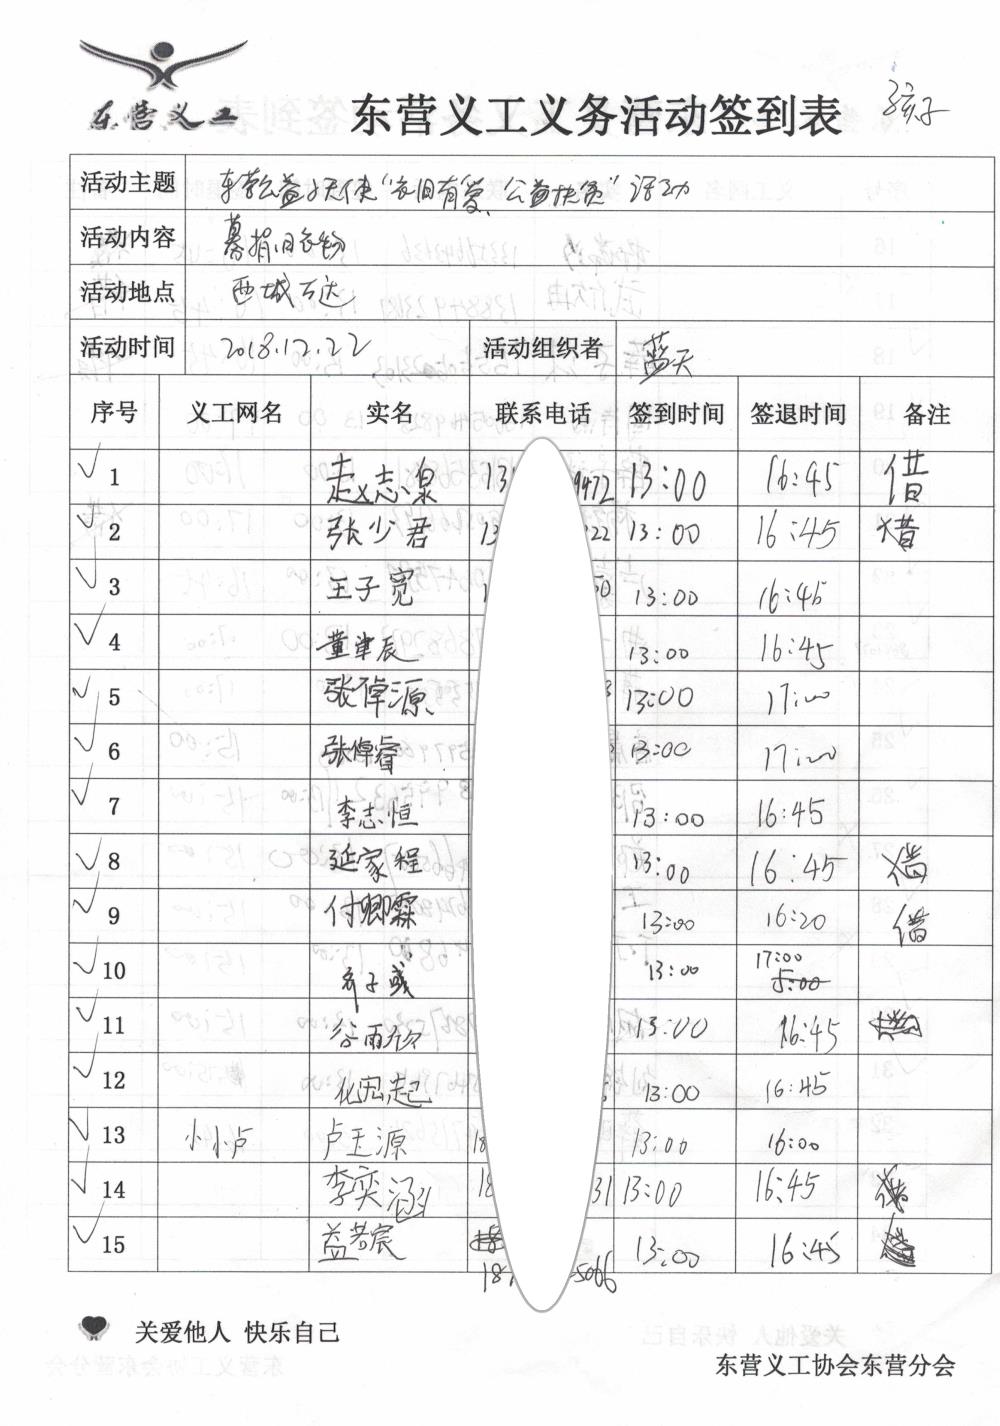 东营义工
东营义工义务活动签到表 孩子
活动主题 东营公益小天使“衣旧有爱、公益扶贫”活动
活动内容 募捐旧衣物
活动地点 西城万达
活动时间 2018.12.22 活动组织者 蓝天
序号 义工网名 实名 联系电话 签到时间 签退时间 备注
1 赵志源 13 9472 13:00 16:45 借
2 张少君 13 22 13:00 16:45 借
3 王子宽 1 50 13:00 16:45
4 董聿辰 13:00 16:45
5 张倬源 3 13:00 17:00
6 张倬睿 13:00 17:00
7 李志恒 13:00 16:45
8 延家程 13:00 16:45 借
9 付卿霖 13:00 16:20 借
10 齐子彧 13:00 17:00 5:00
11 谷雨欣 13:00 16:45
12 化宏起 13:00 16:45
13 小小卢 卢玉源 18 13:00 16:00
14 李奕涵 18 31 13:00 16:45
15 益若宸 13:00 16:45
18 5066
关爱他人 快乐自己
东营义工协会东营分会